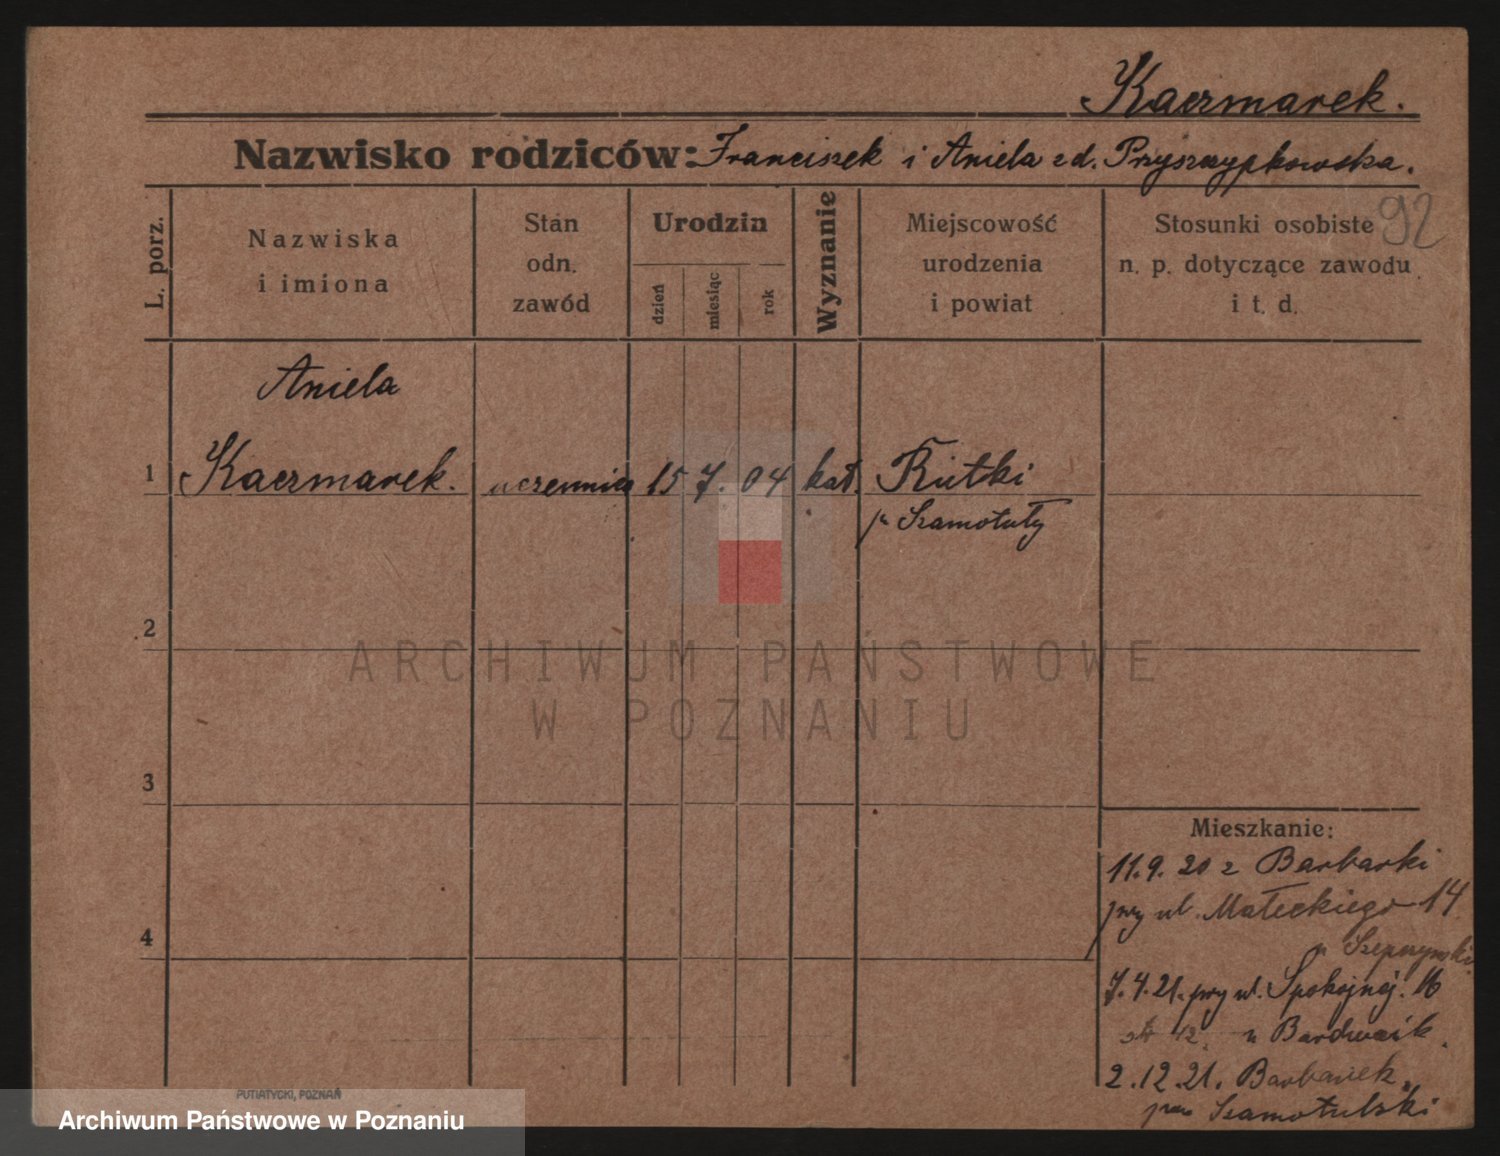 Kaczmarek.
Nazwisko rodziców: Franciszek i Aniela z d. Przyszczypkowska.
92
L. porz.
Nazwiska
i imiona
Stan
odn.
zawód
Urodzin
dzień
miesiąc
rok
Wyznanie
Miejscowość
urodzenia
i powiat
Stosunki osobiste
n. p. dotyczące zawodu
i t. d.
Aniela
1 Kaczmarek. uczennica 15 7. 04 kat. Rutki
p. Szamotuły
2
3
4
Mieszkanie:
11.9.20 z Barbarki
przy ul. Małeckiego 14
7.4.21. przy ul. Spokojnéj. 16
12. u
2.12.21. Barbarek,
pow Szamotulski
ARCHIWUM PAŃSTWOWE
W POZNANIU
PUTIATYCKI, POZNAŃ
Archiwum Państwowe w Poznaniu